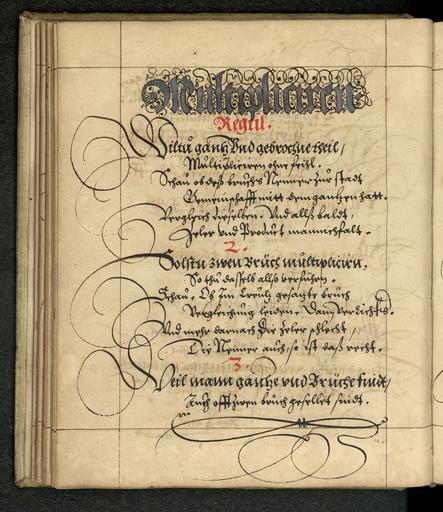 Multipliciren
Regul.
Wiltu gantz Vnd gebrochne theil/
Multipliciren ohne feihl.
Schau ob deß bruchs Nenner zur stadt
Gemeinschafft mitt dem gantzen hatt.
Vergleich dieselben. Vnd allß baldt,
Zeler vnd Product mannichfalt.
2.
Solstu zwen Brüch multiplicirn,
So thu dasselb allso verführn.
Schau. Ob Im Creutz gesatzte brüch
Vergleichung leiden. Dann
Vnd mehr darnach die Zeler schlecht,
Die Nenner auch, so ist daß recht.
3.
Weil mann gantze vnd Brüche findt/
Auch offt zwen brüch gesellet sindt.